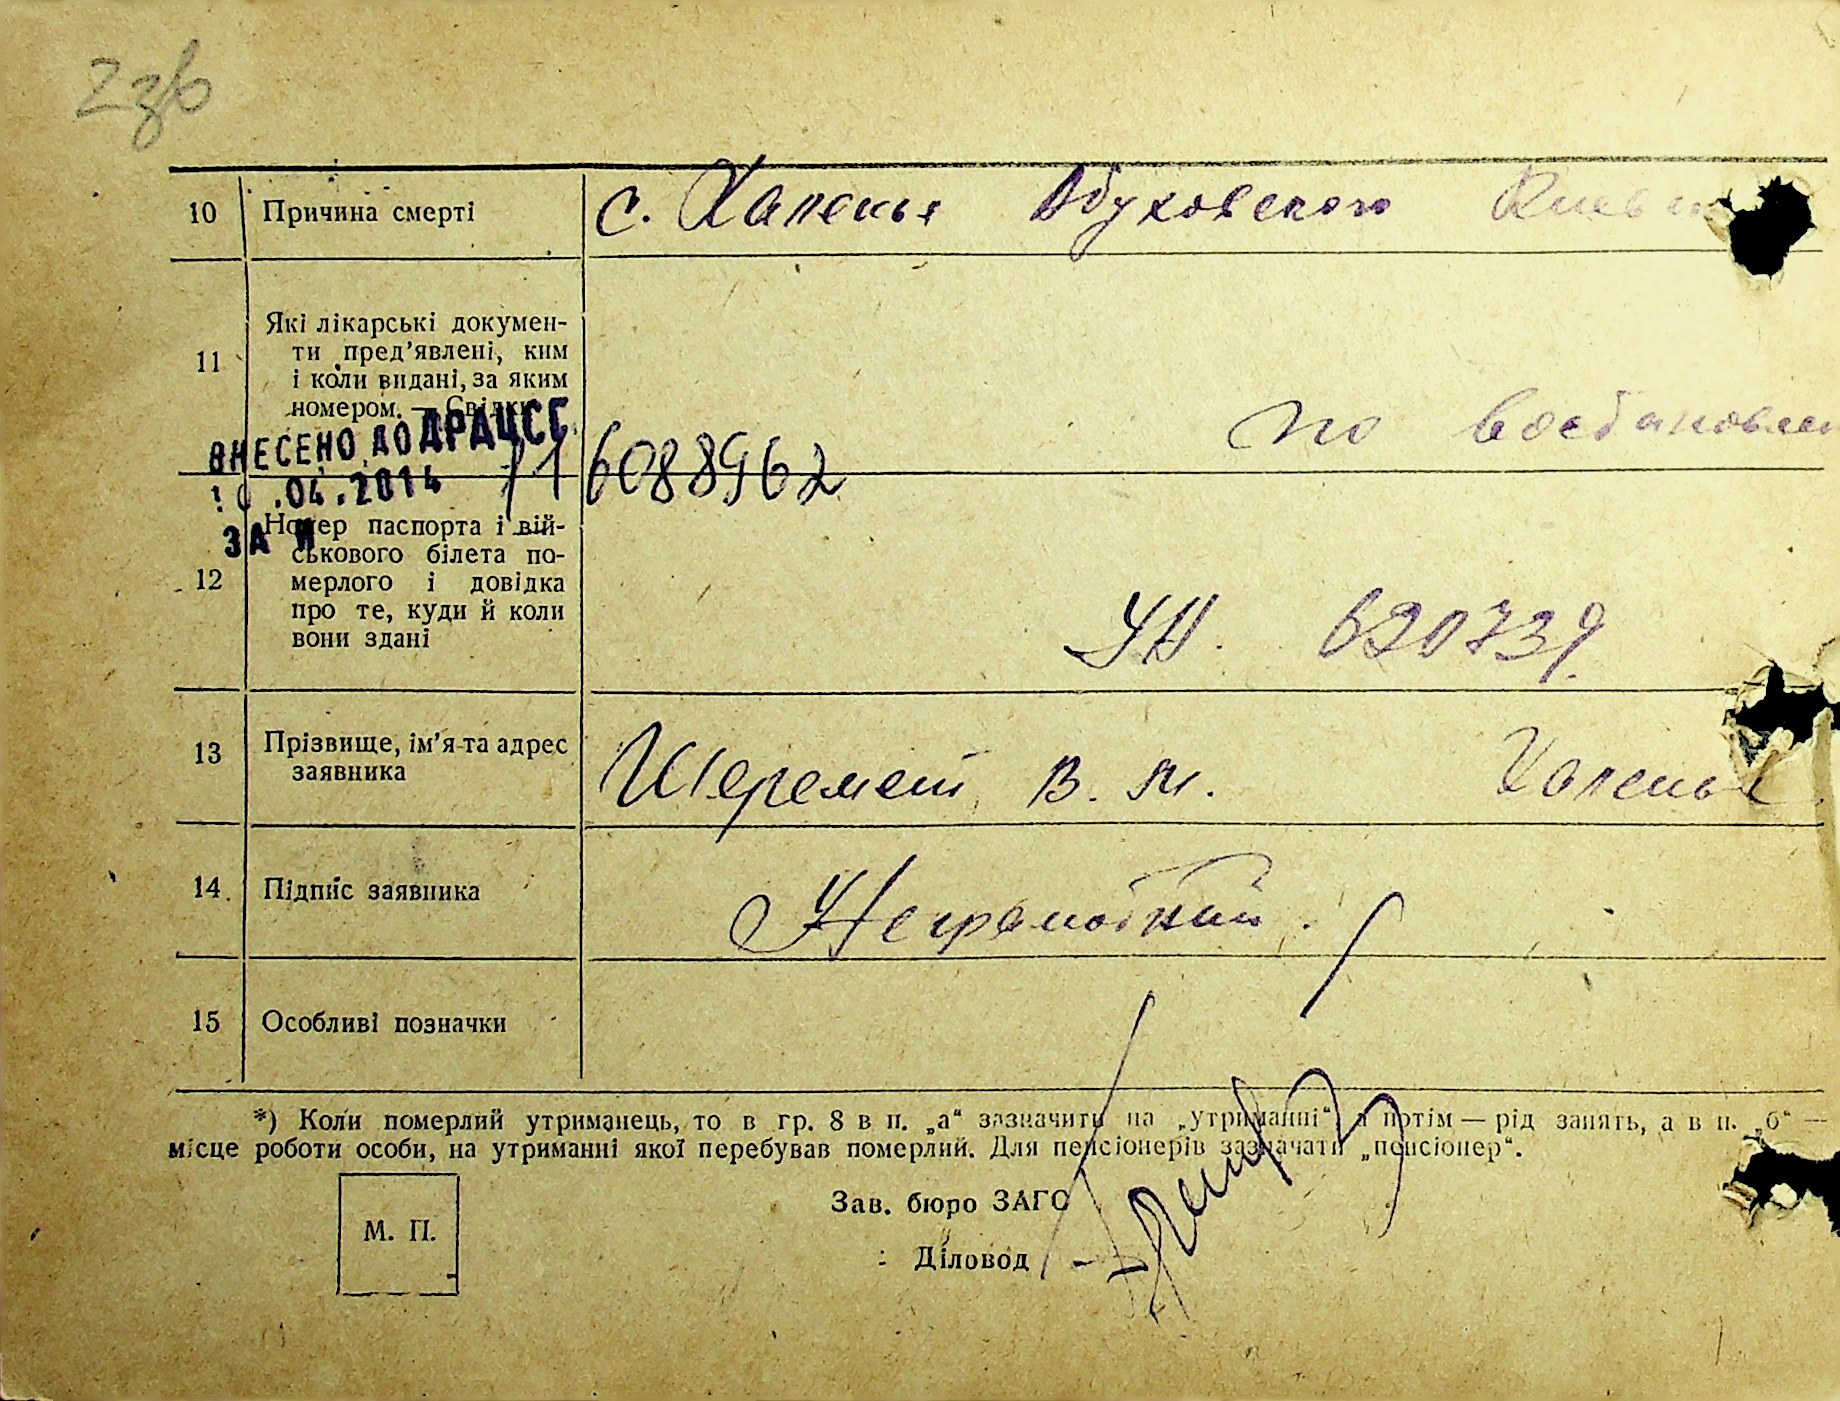 10 Причина смерті с. Халепья Обуховского Киевск
11 Які лікарські докумен-
ти пред’явлені, ким
і коли видані, за яким
номером. — Свідки
по востановлен
ВНЕСЕНО ДО ДРАЦСГ
.04.2014
ЗА №
16088962
12 Номер паспорта і вій-
ськового білета по-
мерлого і довідка
про те, куди й коли
вони здані
УН. 620739.
13 Прізвище, ім’я та адрес
заявника
Шеремет В. М. Халепья
14. Підпис заявника Неграмотний.
15 Особливі позначки
*) Коли померлий утриманець, то в гр. 8 в п. „а“ зазначити на „утриманні“ а потім — рід занять, а в п. „б“ —
місце роботи особи, на утриманні якої перебував померлий. Для пенсіонерів зазначати „пенсіонер“.
М. П.
Зав. бюро ЗАГС
Діловод